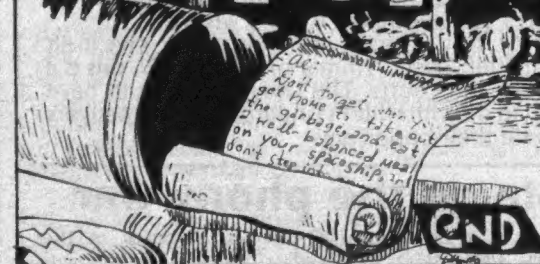 Al:
Don't forget when you
get home to take out
the garbage, and eat
a well-balanced meal
on your spaceship, in
don't step int
END